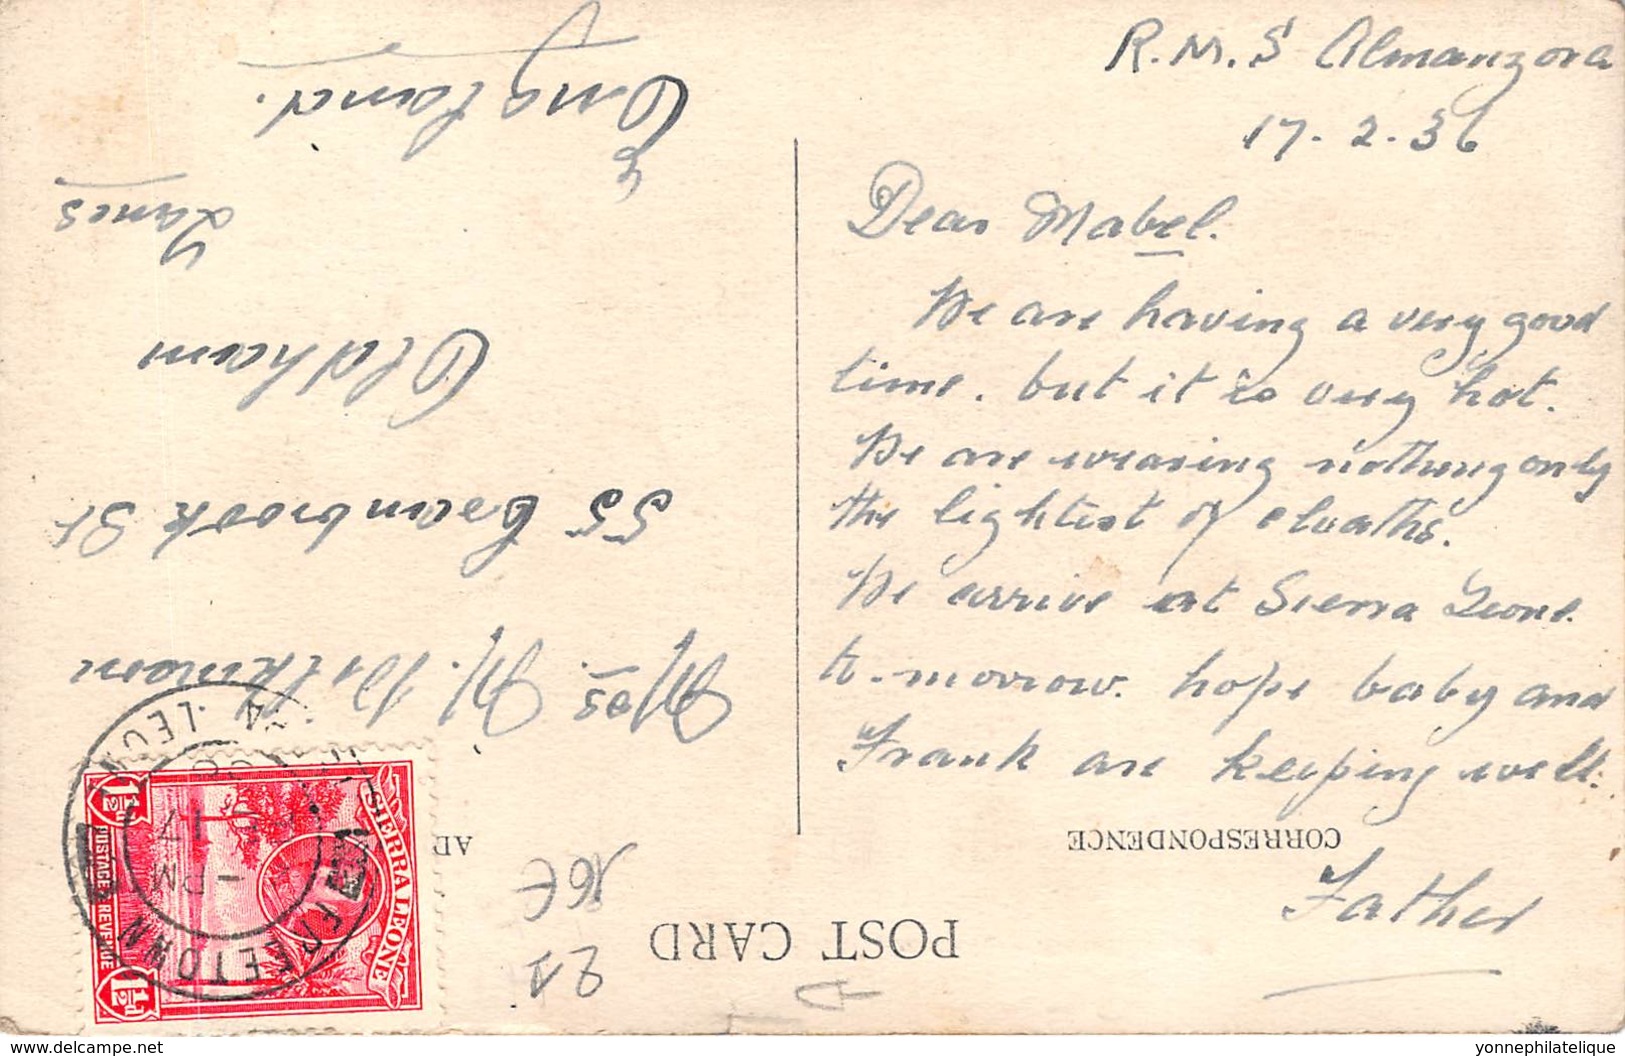 R.M.S Almanzora
17. 2. 36
Dear Mabel.
We are having a very good
time. but it is very hot.
We are wearing nothing only
the lightest of cloaths.
We arrive at Sierra Leone
to-morrow. hope baby and
Frank are keeping well.
Father
CORRESPONDENCE
POST CARD
AD
16€
21
Mrs. M.
55 Cranbrook St
Oldham
Lancs
England.
SIERRA LEONE
POSTAGE REVENUE
1½d
1½d
FREETOWN
PM
17
yonnephilatelie.delcampe.net
yonnephilatelie